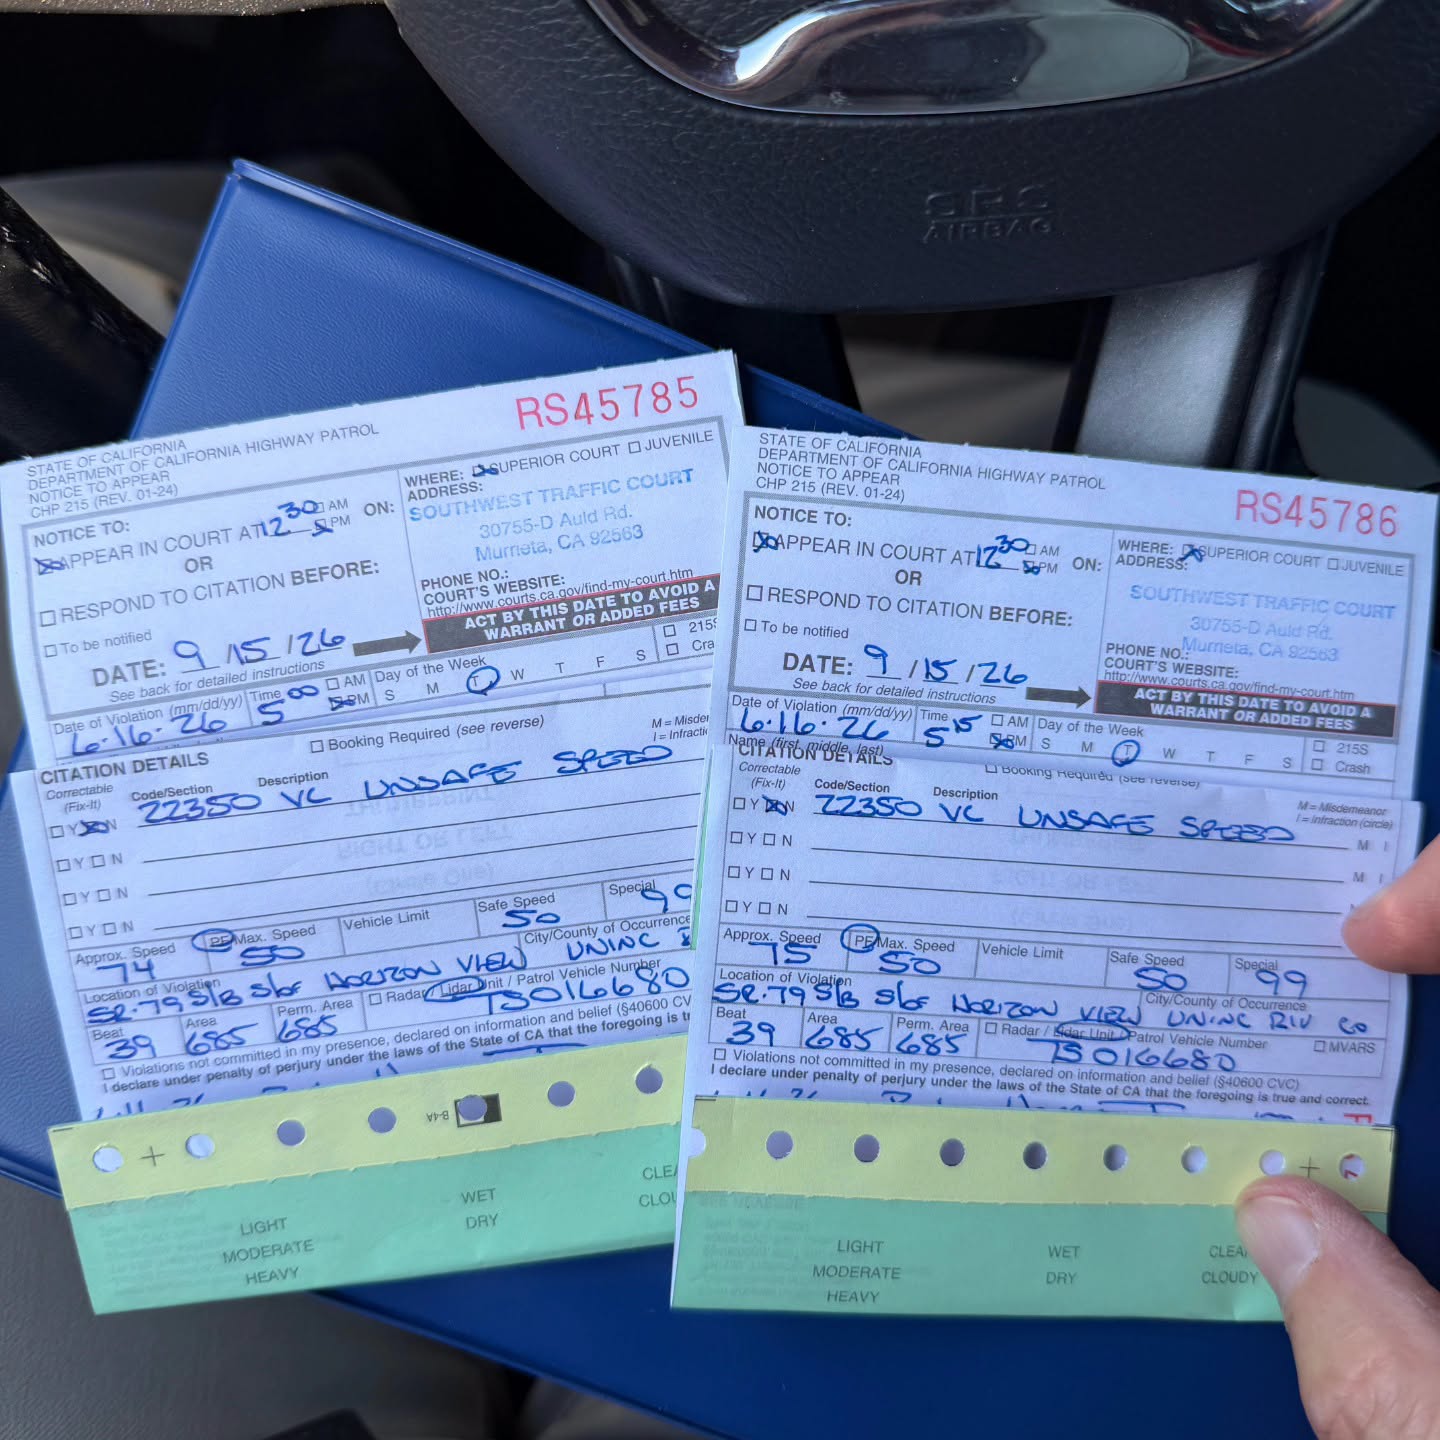 SRS
AIRBAG
RS45785
STATE OF CALIFORNIA
DEPARTMENT OF CALIFORNIA HIGHWAY PATROL
NOTICE TO APPEAR
CHP 215 (REV. 01-24)
WHERE: SUPERIOR COURT JUVENILE
ADDRESS:
SOUTHWEST TRAFFIC COURT
30755-D Auld Rd.
Murrieta, CA 92563
NOTICE TO:
APPEAR IN COURT AT 12 30 AM PM ON:
OR
RESPOND TO CITATION BEFORE:
To be notified
PHONE NO.:
COURT'S WEBSITE:
http://www.courts.ca.gov/find-my-court.htm
ACT BY THIS DATE TO AVOID A
WARRANT OR ADDED FEES
DATE: 9/15/26
See back for detailed instructions
215S
Cra
Date of Violation (mm/dd/yy) Time AM PM Day of the Week
6.16.26 5 00 S M T W T F S
Booking Required (see reverse)
CITATION DETAILS
M = Misde
I = Infracti
Correctable
(Fix-It) Code/Section Description
Y N 22350 VC UNSAFE SPEED
Y N
Y N
Y N
Approx. Speed PF/Max. Speed Vehicle Limit Safe Speed Special
74 50 50 99
Location of Violation City/County of Occurrence
SR-79 S/B S/OF HORIZON VIEW UNINC
Beat Area Perm. Area Radar / Lidar Unit / Patrol Vehicle Number
39 685 685 TS016680
Violations not committed in my presence, declared on information and belief (§40600 CV
I declare under penalty of perjury under the laws of the State of CA that the foregoing is tr
B-4A
LIGHT WET CLEA
MODERATE DRY CLOU
HEAVY
RS45786
STATE OF CALIFORNIA
DEPARTMENT OF CALIFORNIA HIGHWAY PATROL
NOTICE TO APPEAR
CHP 215 (REV. 01-24)
WHERE: SUPERIOR COURT JUVENILE
ADDRESS:
SOUTHWEST TRAFFIC COURT
30755-D Auld Rd.
Murrieta, CA 92563
NOTICE TO:
APPEAR IN COURT AT 12 30 AM PM ON:
OR
RESPOND TO CITATION BEFORE:
To be notified
PHONE NO.:
COURT'S WEBSITE:
http://www.courts.ca.gov/find-my-court.htm
ACT BY THIS DATE TO AVOID A
WARRANT OR ADDED FEES
DATE: 9/15/26
See back for detailed instructions
Date of Violation (mm/dd/yy) Time AM PM Day of the Week
6.16.26 5 15 S M T W T F S
215S
Crash
Name (first, middle, last)
CITATION DETAILS
Booking Required (see reverse)
M = Misdemeanor
I = Infraction (circle)
Correctable
(Fix-It) Code/Section Description
Y N 22350 VC UNSAFE SPEED M I
Y N M I
Y N
Y N
Approx. Speed PF/Max. Speed Vehicle Limit Safe Speed Special
75 50 50 99
Location of Violation City/County of Occurrence
SR-79 S/B S/OF HORIZON VIEW UNINC RIV CO
Beat Area Perm. Area Radar / Lidar Unit / Patrol Vehicle Number MVARS
39 685 685 TS016680
Violations not committed in my presence, declared on information and belief (§40600 CVC)
I declare under penalty of perjury under the laws of the State of CA that the foregoing is true and correct.
LIGHT WET CLEA
MODERATE DRY CLOUDY
HEAVY